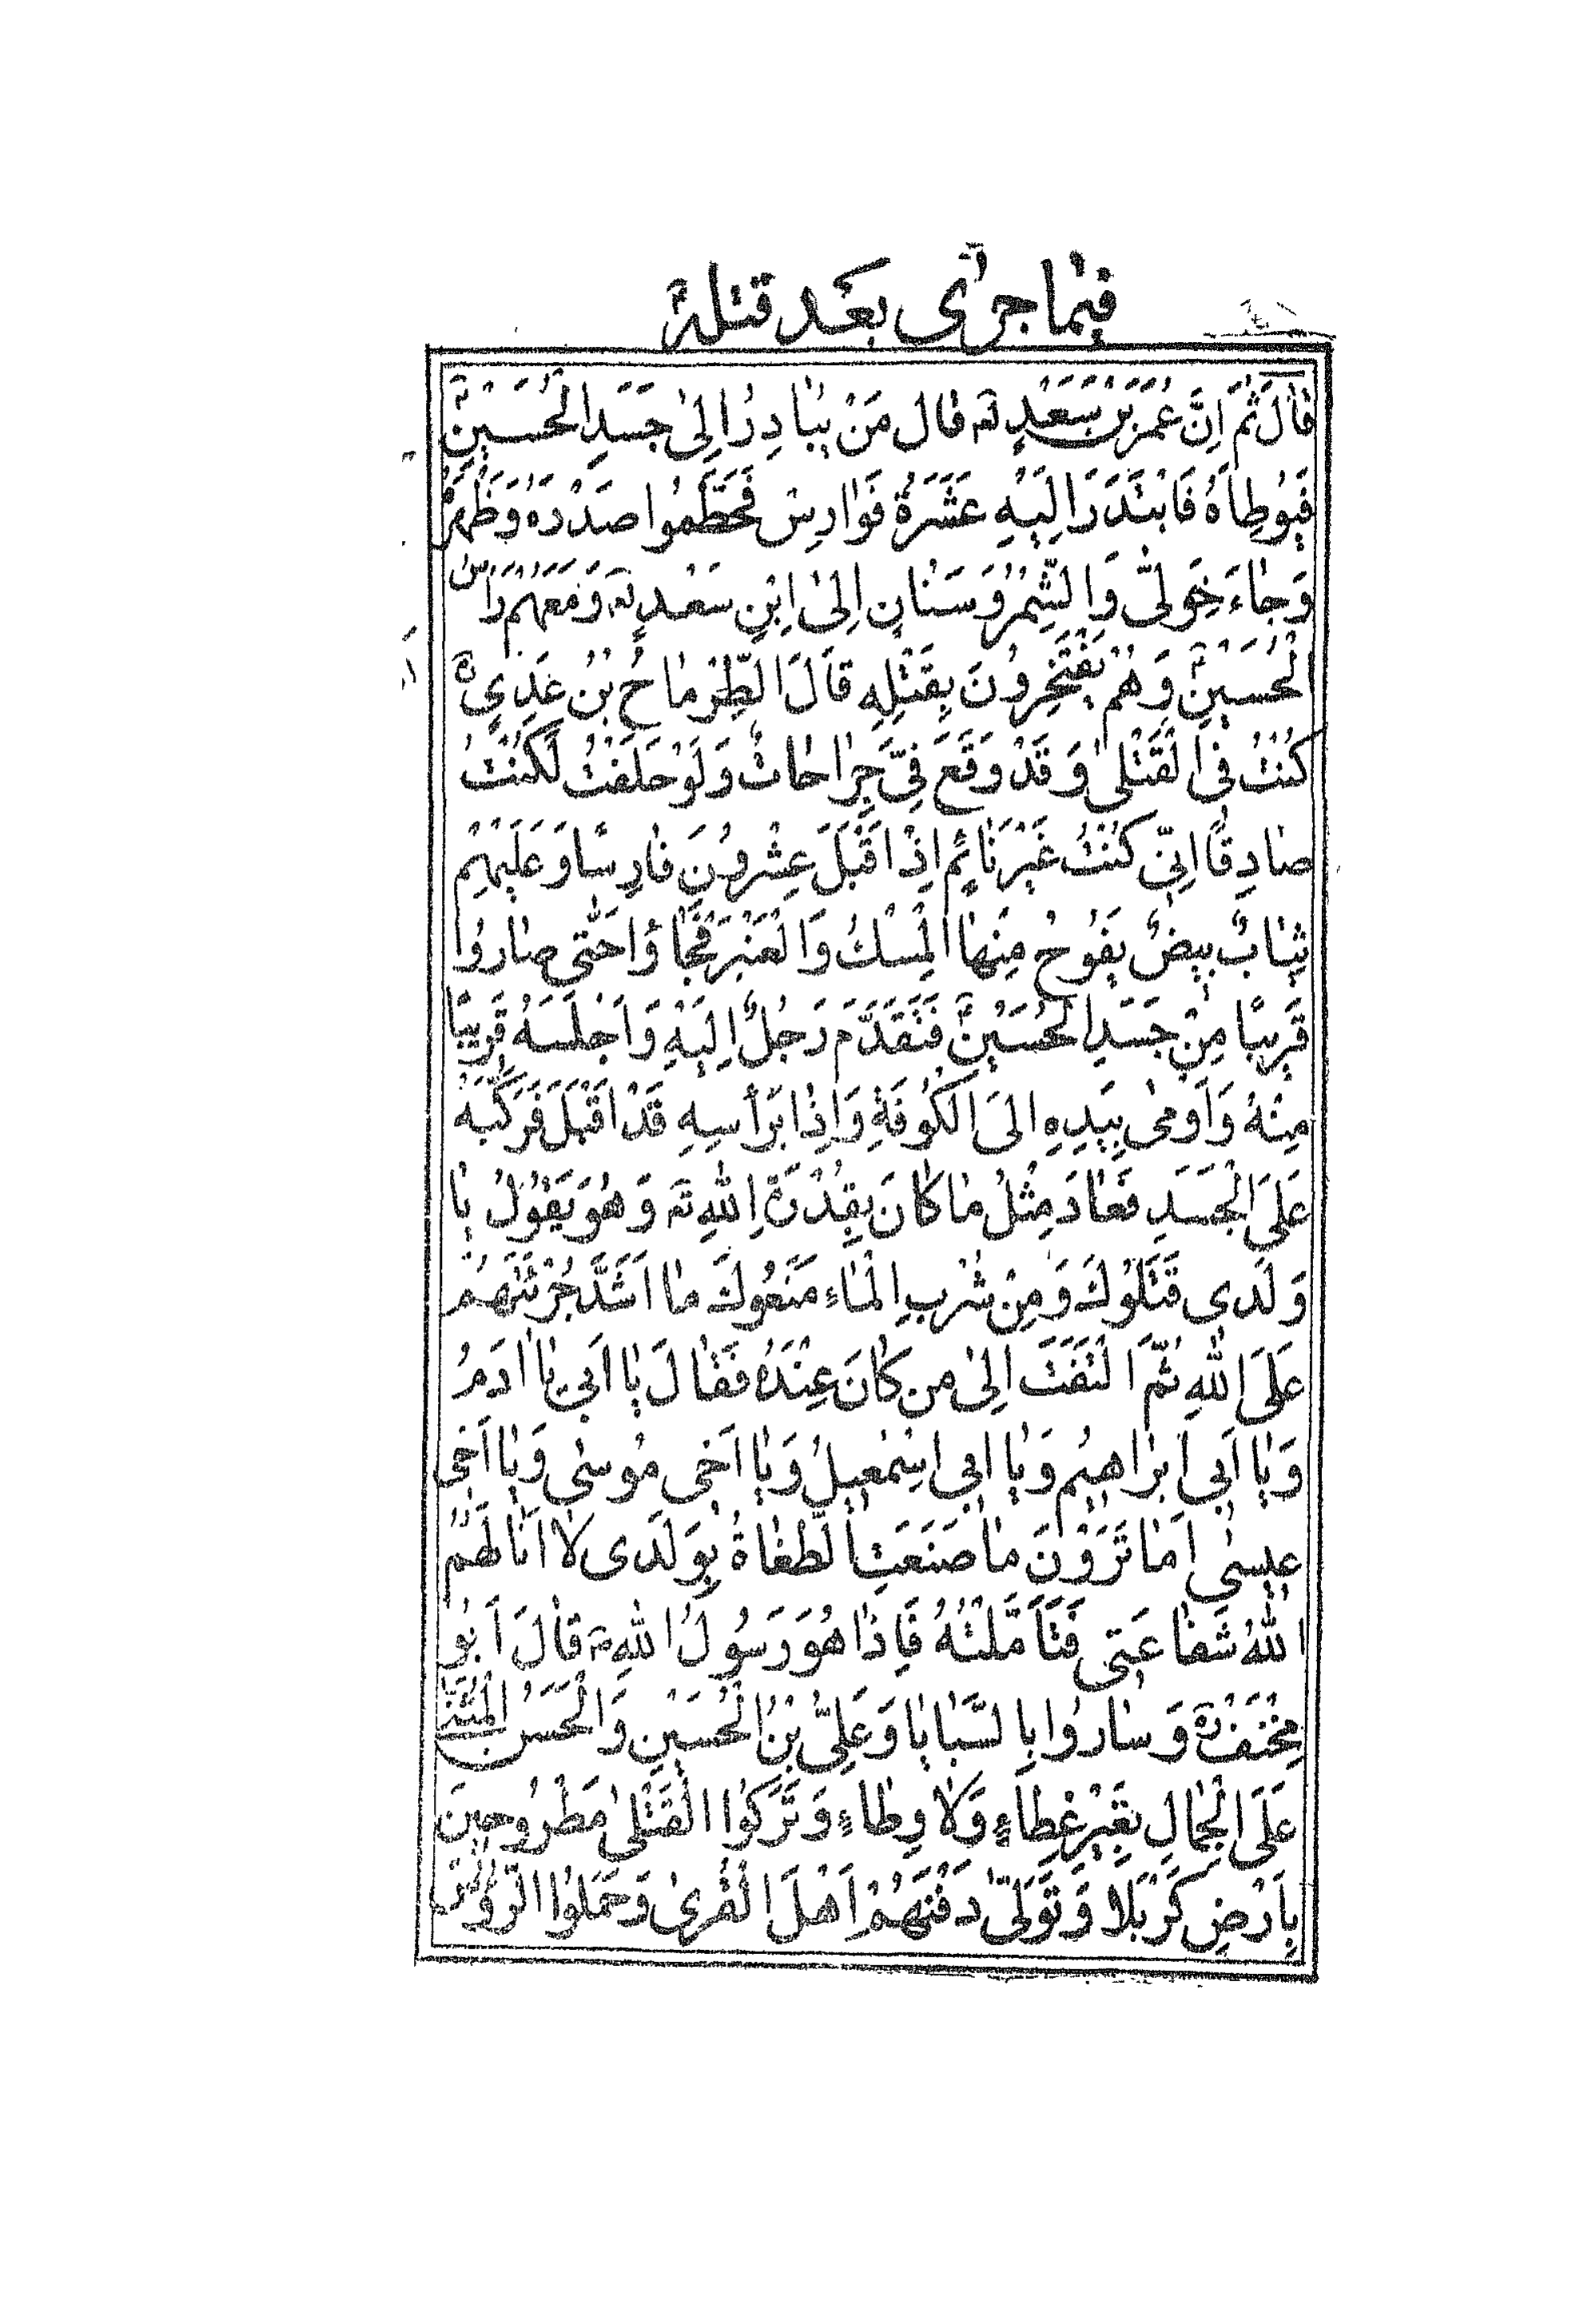 فیما جرٰی بعد قتله
قالَ ثُمَّ اِنَّ عُمَرَ بْنَ سَعَدٍ قال مَنْ یُبٰادِرُ اِلیٰ جَسَدِ الحُسَیْنِ
فَیُوطِاَهُ فَابْتَدَرَ اِلَیْهِ عَشَرَةُ فَوٰارِسْ فَحَطَّمُوا صَدْرَهُ وَظَهْرَهُ
وَجٰاءَ خَوَلیُّ وَالشِّمْرُ وَسَنٰانِ اِلیٰ اِبْنِ سَعْدٍ وَمَعَهُم رَاْسُ
الْحُسَیْنِ وَهُمْ یَفْتَخِرُونَ بِقَتْلِهِ قالَ الطِّرْمٰاحُ بْنُ عَدِیٍ
کُنْتُ فِی الْقَتْلیٰ وَقَدْ وَقَعَ فِیَّ جِرٰاحٰاتٌ وَلَوْ حَلَفْتُ لَکُنْتُ
صٰادِقًا اِنِّی کُنْتُ غَیْرَ نٰائِمٍ اِذْ اَقْبَلَ عِشْرُونَ فٰارِسًا وَعَلَیْهِمْ
ثِیٰابٌ بِیضٌ یَفُوحُ مِنْهٰا الْمِسْكُ وَالْعَنْبَرُ فَجٰاؤُا حَتّٰی صٰارُوا
قَرِیبًا مِنْ جَسَدِ الْحُسَیْنِ فَتَقَدَّمَ رَجُلٌ اِلَیْهِ وَاَجْلَسَهُ قَرِیبًا
مِنْهُ وَاَومیٰ بِیَدِهِ اِلَی الْکُوفَةِ وَاِذٰا بِرَأسِهِ قَدْ اَقْبَلَ فَرَکَّبَهُ
عَلَی الْجَسَدِ فَعٰادَ مِثْلُ مٰا کٰانَ بِقُدْرَةِ اللّٰهِ تَه وَهُوَ یَقُولُ یٰا
وَلَدی قَتَلُوكَ وَمِنْ شُرْبِ الْمٰاءِ مَنَعُوكَ مٰا اَشَدَّ جُرْئَتَهُمْ
عَلَی اللّٰهِ ثُمَّ الْتَفَتَ اِلیٰ مِن کٰانَ عِنْدَهُ فَقٰالَ یٰا اَبی یٰا اٰدَمُ
وَیٰا اَبی اِبْرٰاهیمُ وَیٰا اَبی اِسْمٰعیلُ وَیٰا اَخی مُوسٰی وَیٰا اَخی
عیسٰی اَمٰا تَرَوْنَ مٰا صَنَعَتِ الطُّغٰاةُ بِوَلَدی لٰا اَنٰالَهُمُ
اللّٰهُ شَفٰاعَتی فَتَاَمَّلْتُهُ فَاِذٰا هُوَ رَسُولُ اللّٰهِ قٰالَ اَبُو
مِخْنَفْ وَسٰارُوا بِالسَّبٰایٰا وَعَلِیُّ بْنُ الْحُسَیْنِ وَالْحَسَنُ الْمُثَنّٰی
عَلَی الْجِمٰالِ بِغَیْرِ غِطٰاءٍ وَلٰا وِطٰاءٍ وَتَرَکُوا الْقَتْلیٰ مَطْرُوحینَ
بِاَرْضِ کَرْبَلٰا وَتَوَلّیٰ دَفْنَهُمْ اَهْلَ الْقُریٰ وَحَمَلُوا الرُّؤُسَ